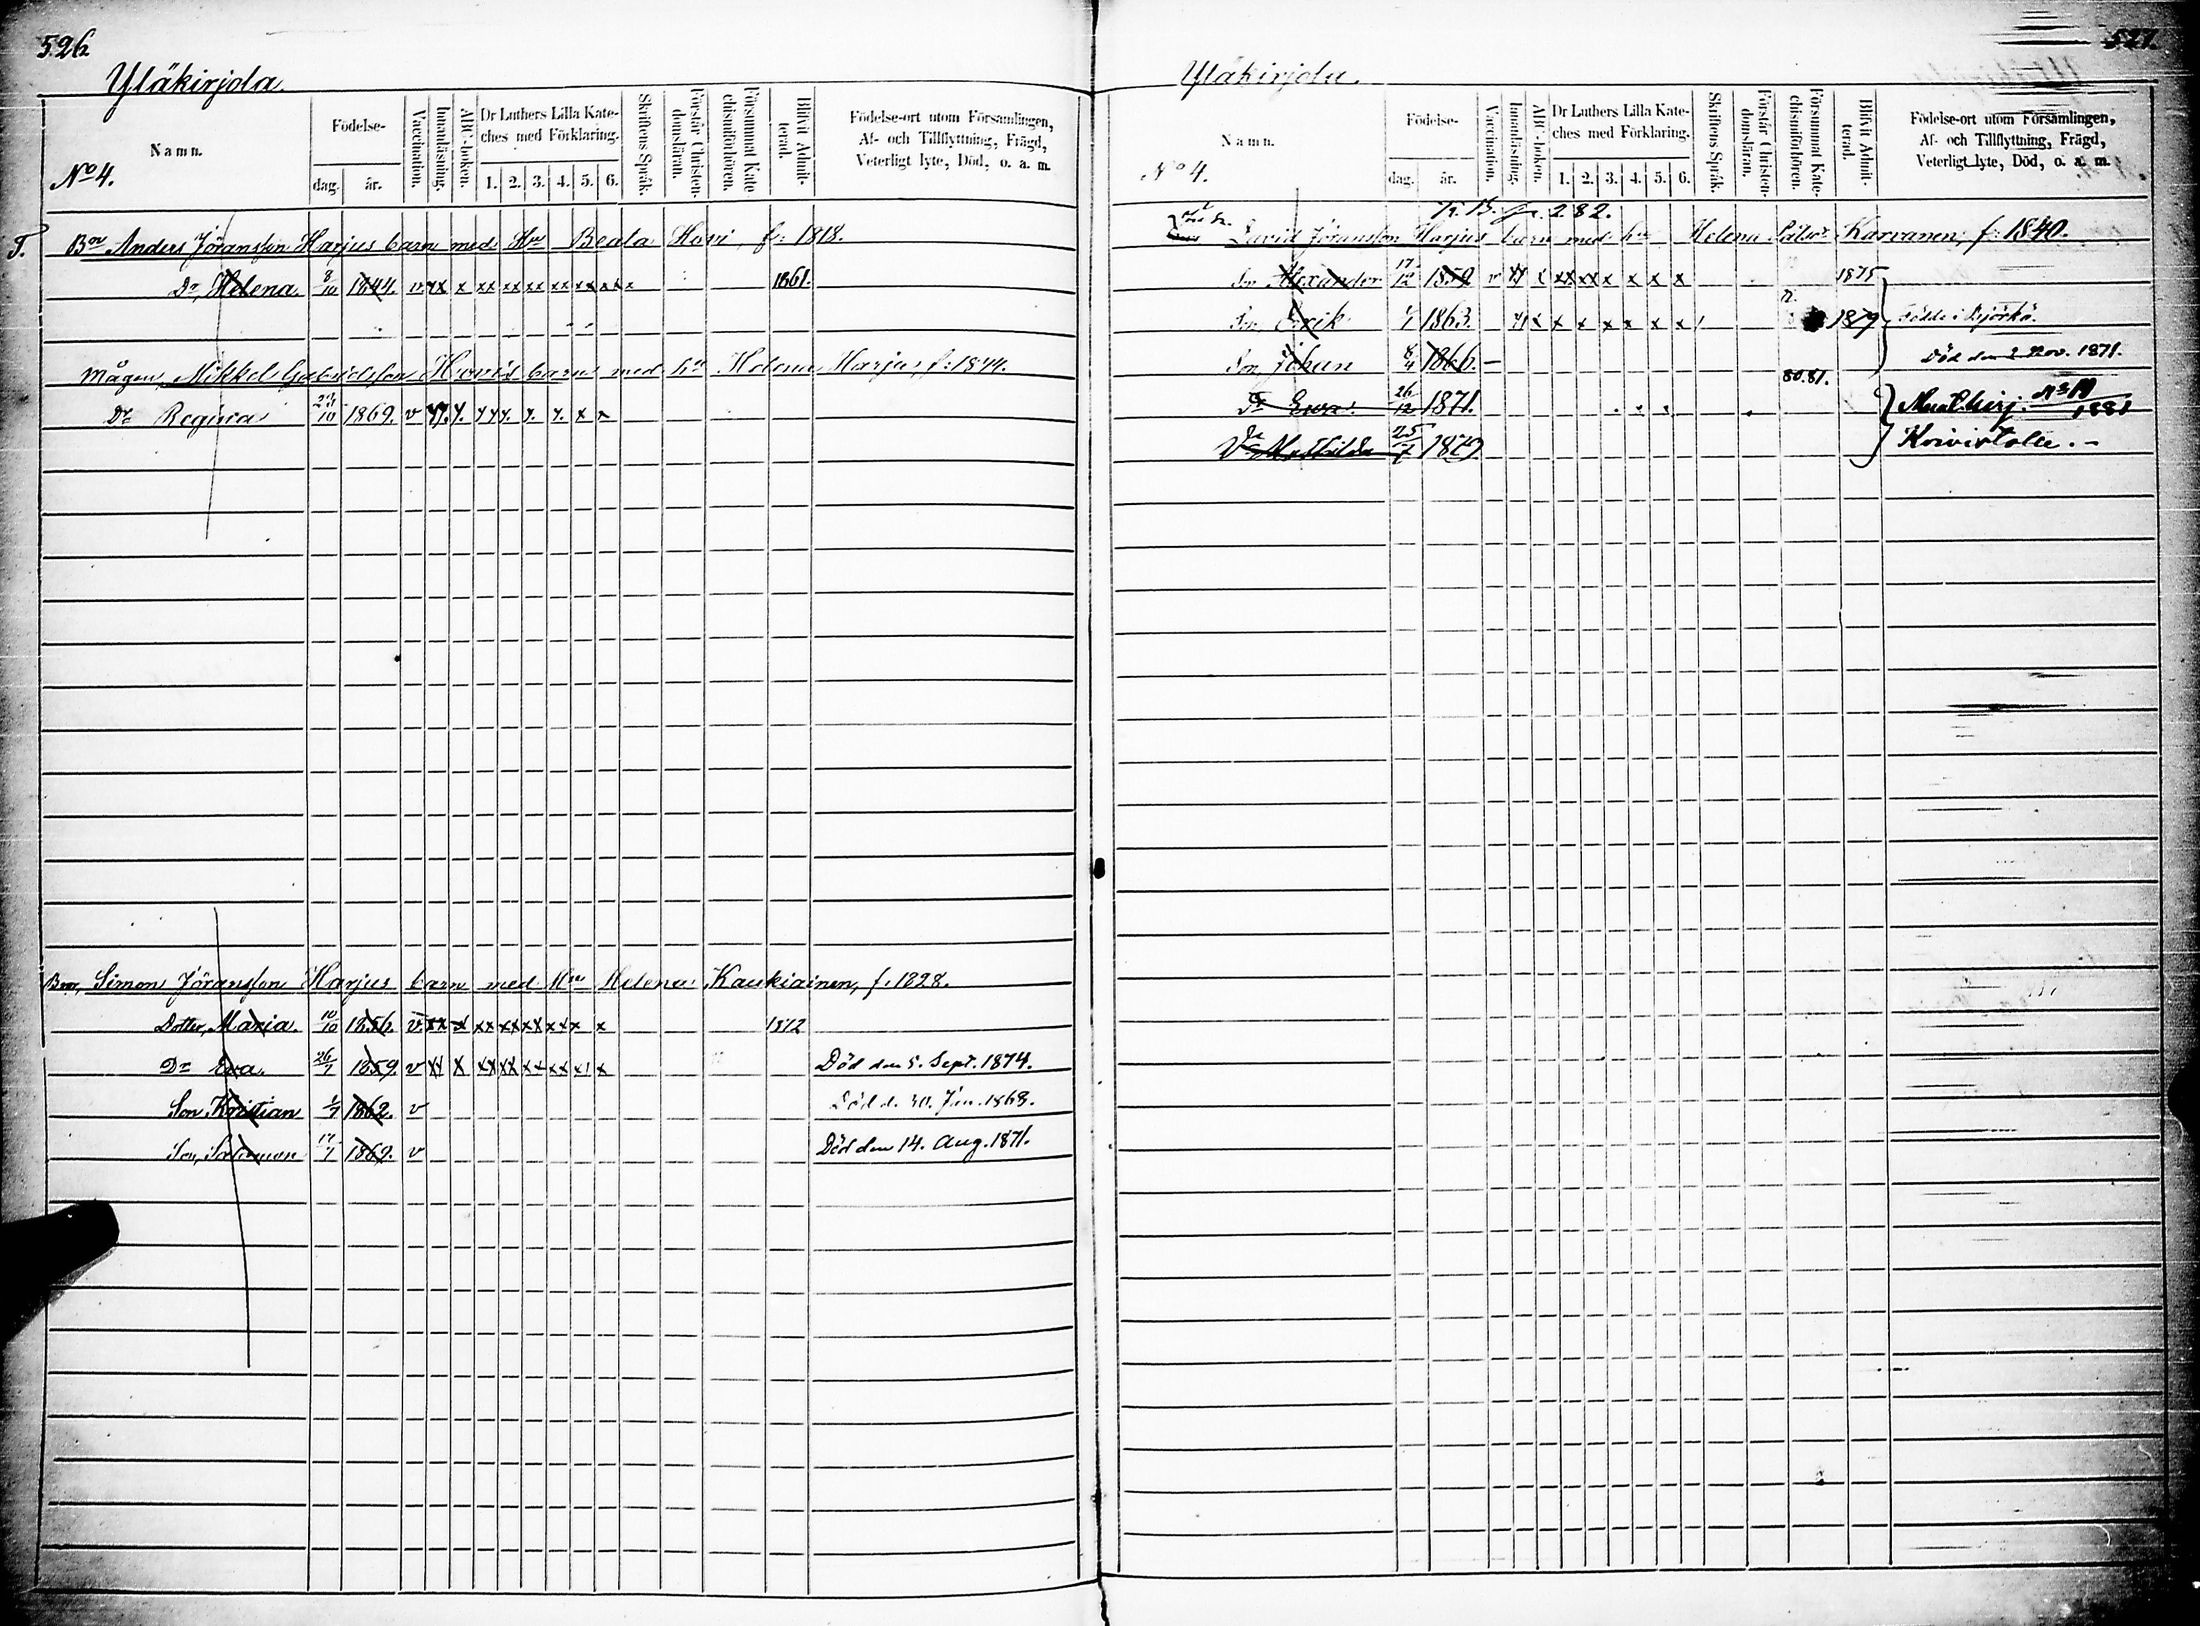 526.
Yläkirjola.
Namn.
No 4.
Födelse-
dag. år.
Vaccination.
Innanläsning.
ABC-boken.
Dr Luthers Lilla Kate-
ches med Förklaring.
1. 2. 3. 4. 5. 6.
Skriftens Språk.
Förstår Christen-
domsläran.
Försummat Kate
chismiförhören.
Blifvit Admit-
terad.
Födelse-ort utom Församlingen,
Af- och Tillflyttning, Frägd,
Veterligt lyte, Död, o. a. m.
T. Bn Anders Jöransson Harjus barn med Hu Beata Hovi, f: 1818.
Dr, Helena. 8/10 1844. v. xx x xx xx xx xx xx xx x 1861.
Mågen, Mikkel Gabrielsson Hovis barn med hu Helena Harjus, f: 1844.
Dr Regina 23/10 1869. v
Bror, Simon Jöransson Harjus barn med Hu Helena Kaukiainen, f. 1828.
Dotter, Maria. 10/10 1856. v. xx x xx xx xx xx x x 1872
Dr Eva. 26/7 1859. v xx x xx xx xx xx x x Död den 5. Sept. 1874.
Son, Kristian 1/7 1862. v Död d. 30. Jun. 1868.
Son, Salomon 17/7 1869. v Död den 14. Aug. 1871.
527.
Yläkirjola.
Namn.
No 4.
Födelse-
dag. år.
Vaccination.
Innanläsning.
ABC-boken.
Dr Luthers Lilla Kate-
ches med Förklaring.
1. 2. 3. 4. 5. 6.
Skriftens Språk.
Förstår Christen-
domsläran.
Försummat Kate-
chismiförhören.
Blifvit Admit-
terad.
Födelse-ort utom Församlingen,
Af- och Tillflyttning, Frägd,
Veterligt lyte, Död, o. a. m.
282.
David Jöransson Harjus barn med hu Helena Karvanen, f: 1840.
Son Alexander 17/12 1859 v xx x xx xx x x x x 1875
Son, Erik 1/7 1863. x x x x x x x 1879 Födde i Björkö.
Son, Johan 8/4 1866. Död den 2 Nov. 1871.
80.81.
Dr Eva. 26/12 1871. 1881
Dr Mathilda 25/7 1879 Koivistolle.